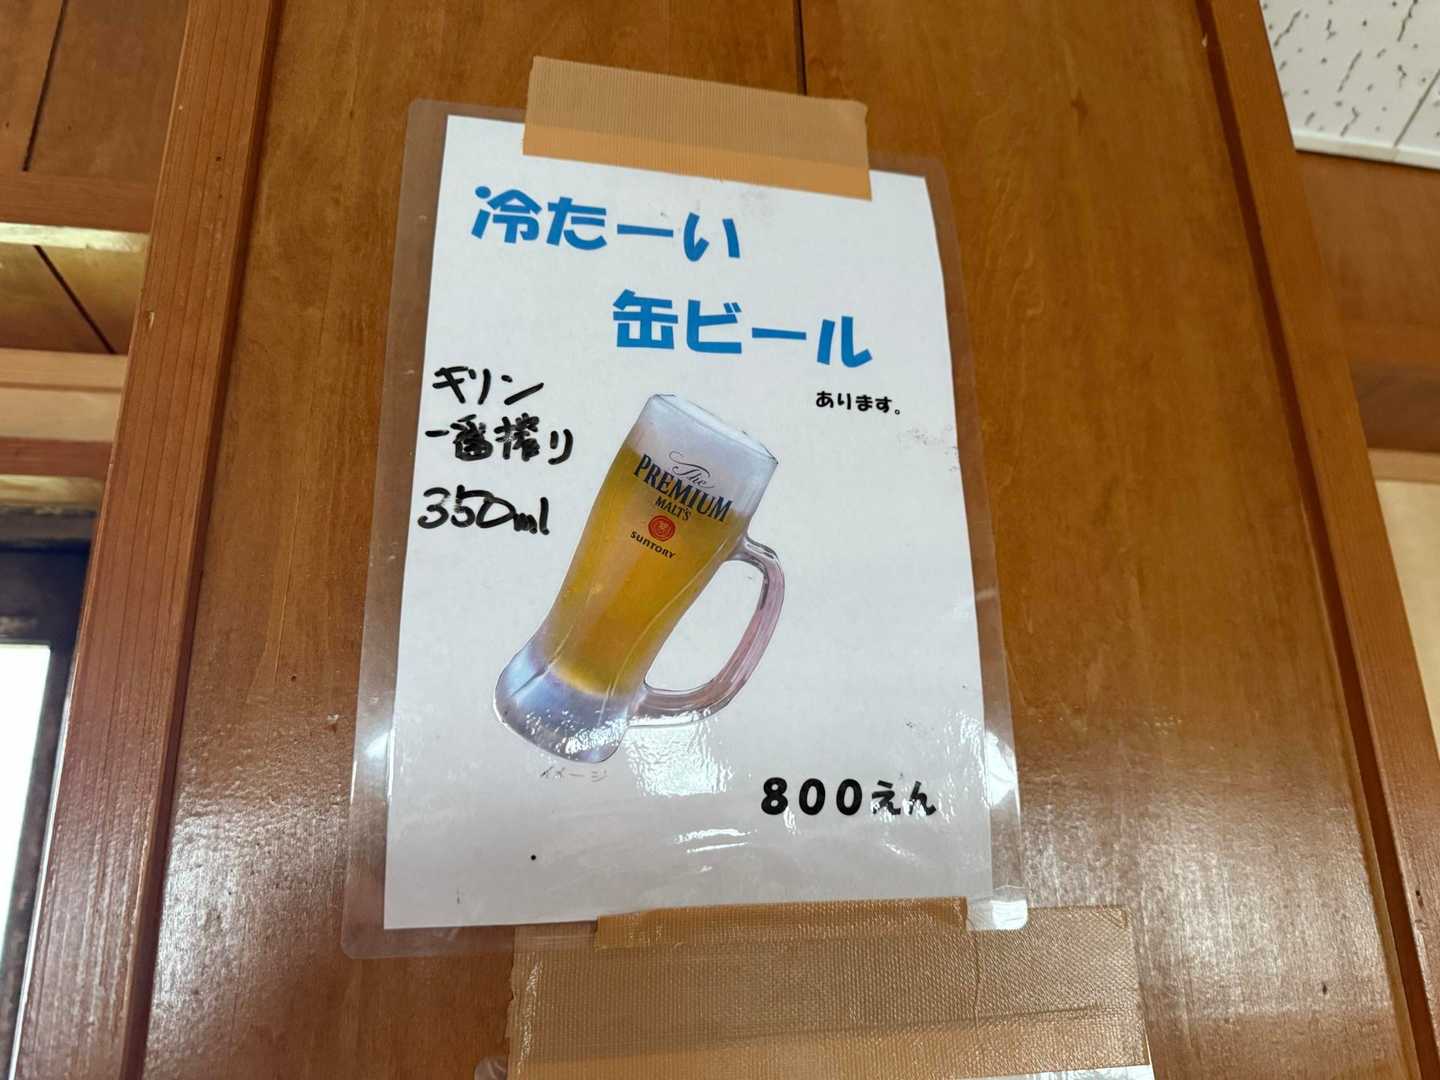 冷たーい
缶ビール
あります。
キリン
一番搾り
350ml
The
PREMIUM
MALT'S
SUNTORY
イメージ
800えん